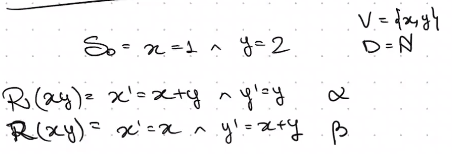 V = {x,y}
S₀ = x=1 ∧ y=2 D=ℕ
R₁(xy)= x'=x+y ∧ y'=y α
R(xy)= x'=x ∧ y'=x+y β